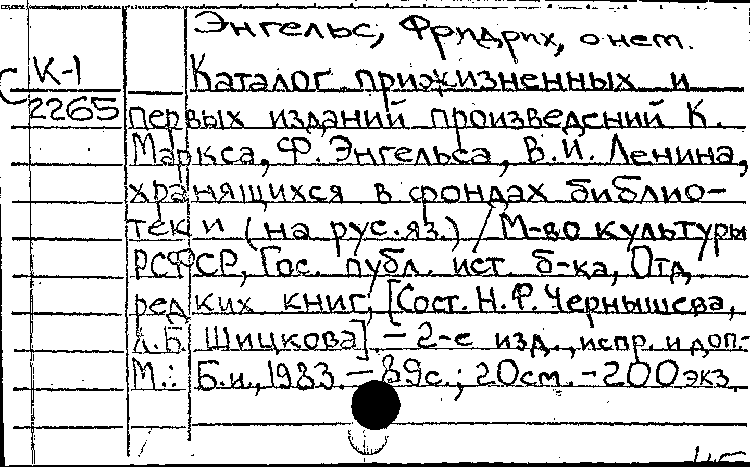 Энгельс, Фридрих, о нем.
С К-1 Каталог прижизненных и
2265 первых изданий произведений К.
Маркса, Ф. Энгельса, В.И. Ленина,
хранящихся в фондах библио-
теки (на рус. яз.) / М-во культуры
РСФСР, Гос. публ. ист. б-ка, Отд.
редких книг; [Сост. Н.Ф. Чернышева,
Л.Б. Шицкова]. - 2-е изд., испр. и доп. -
М.: Б.и., 1983. - 89 с.; 20 см. - 200 экз.